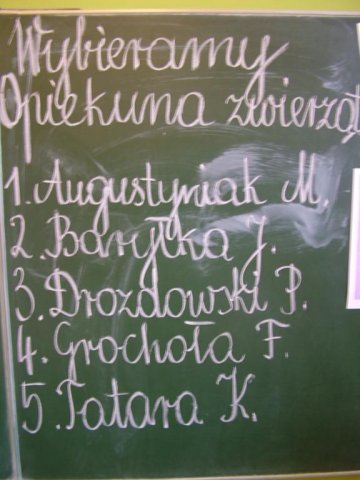 Wybieramy
Opiekuna zwierząt
1. Augustyniak M.
2. Baryłka J.
3. Drozdowski P.
4. Grochoła F.
5. Tatara K.